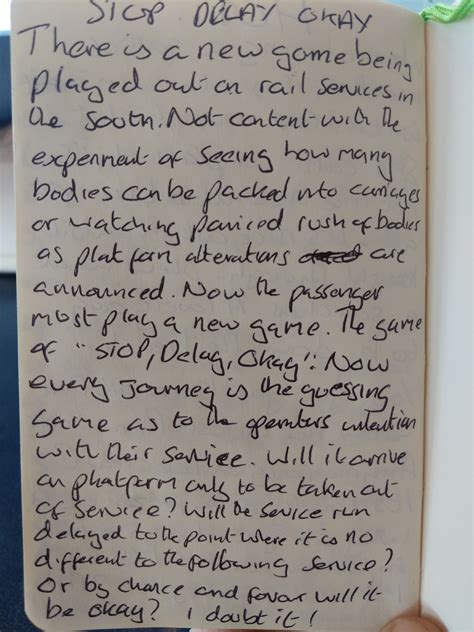 STOP DELAY OKAY
There is a new game being
played out on rail services in
the South. Not content with the
experiment of seeing how many
bodies can be packed into carriages
or watching paniced rush of bodies
as platform alterations are
announced. Now the passenger
must play a new game. The game
of "STOP, Delay, Okay". Now
every Journey is the guessing
game as to the operators intention
with their service. Will it arrive
on phatporm only to be taken out
of service? Will the service run
delayed to the point where it is no
different to the following service?
Or by chance and favour will it
be okay? I doubt it!